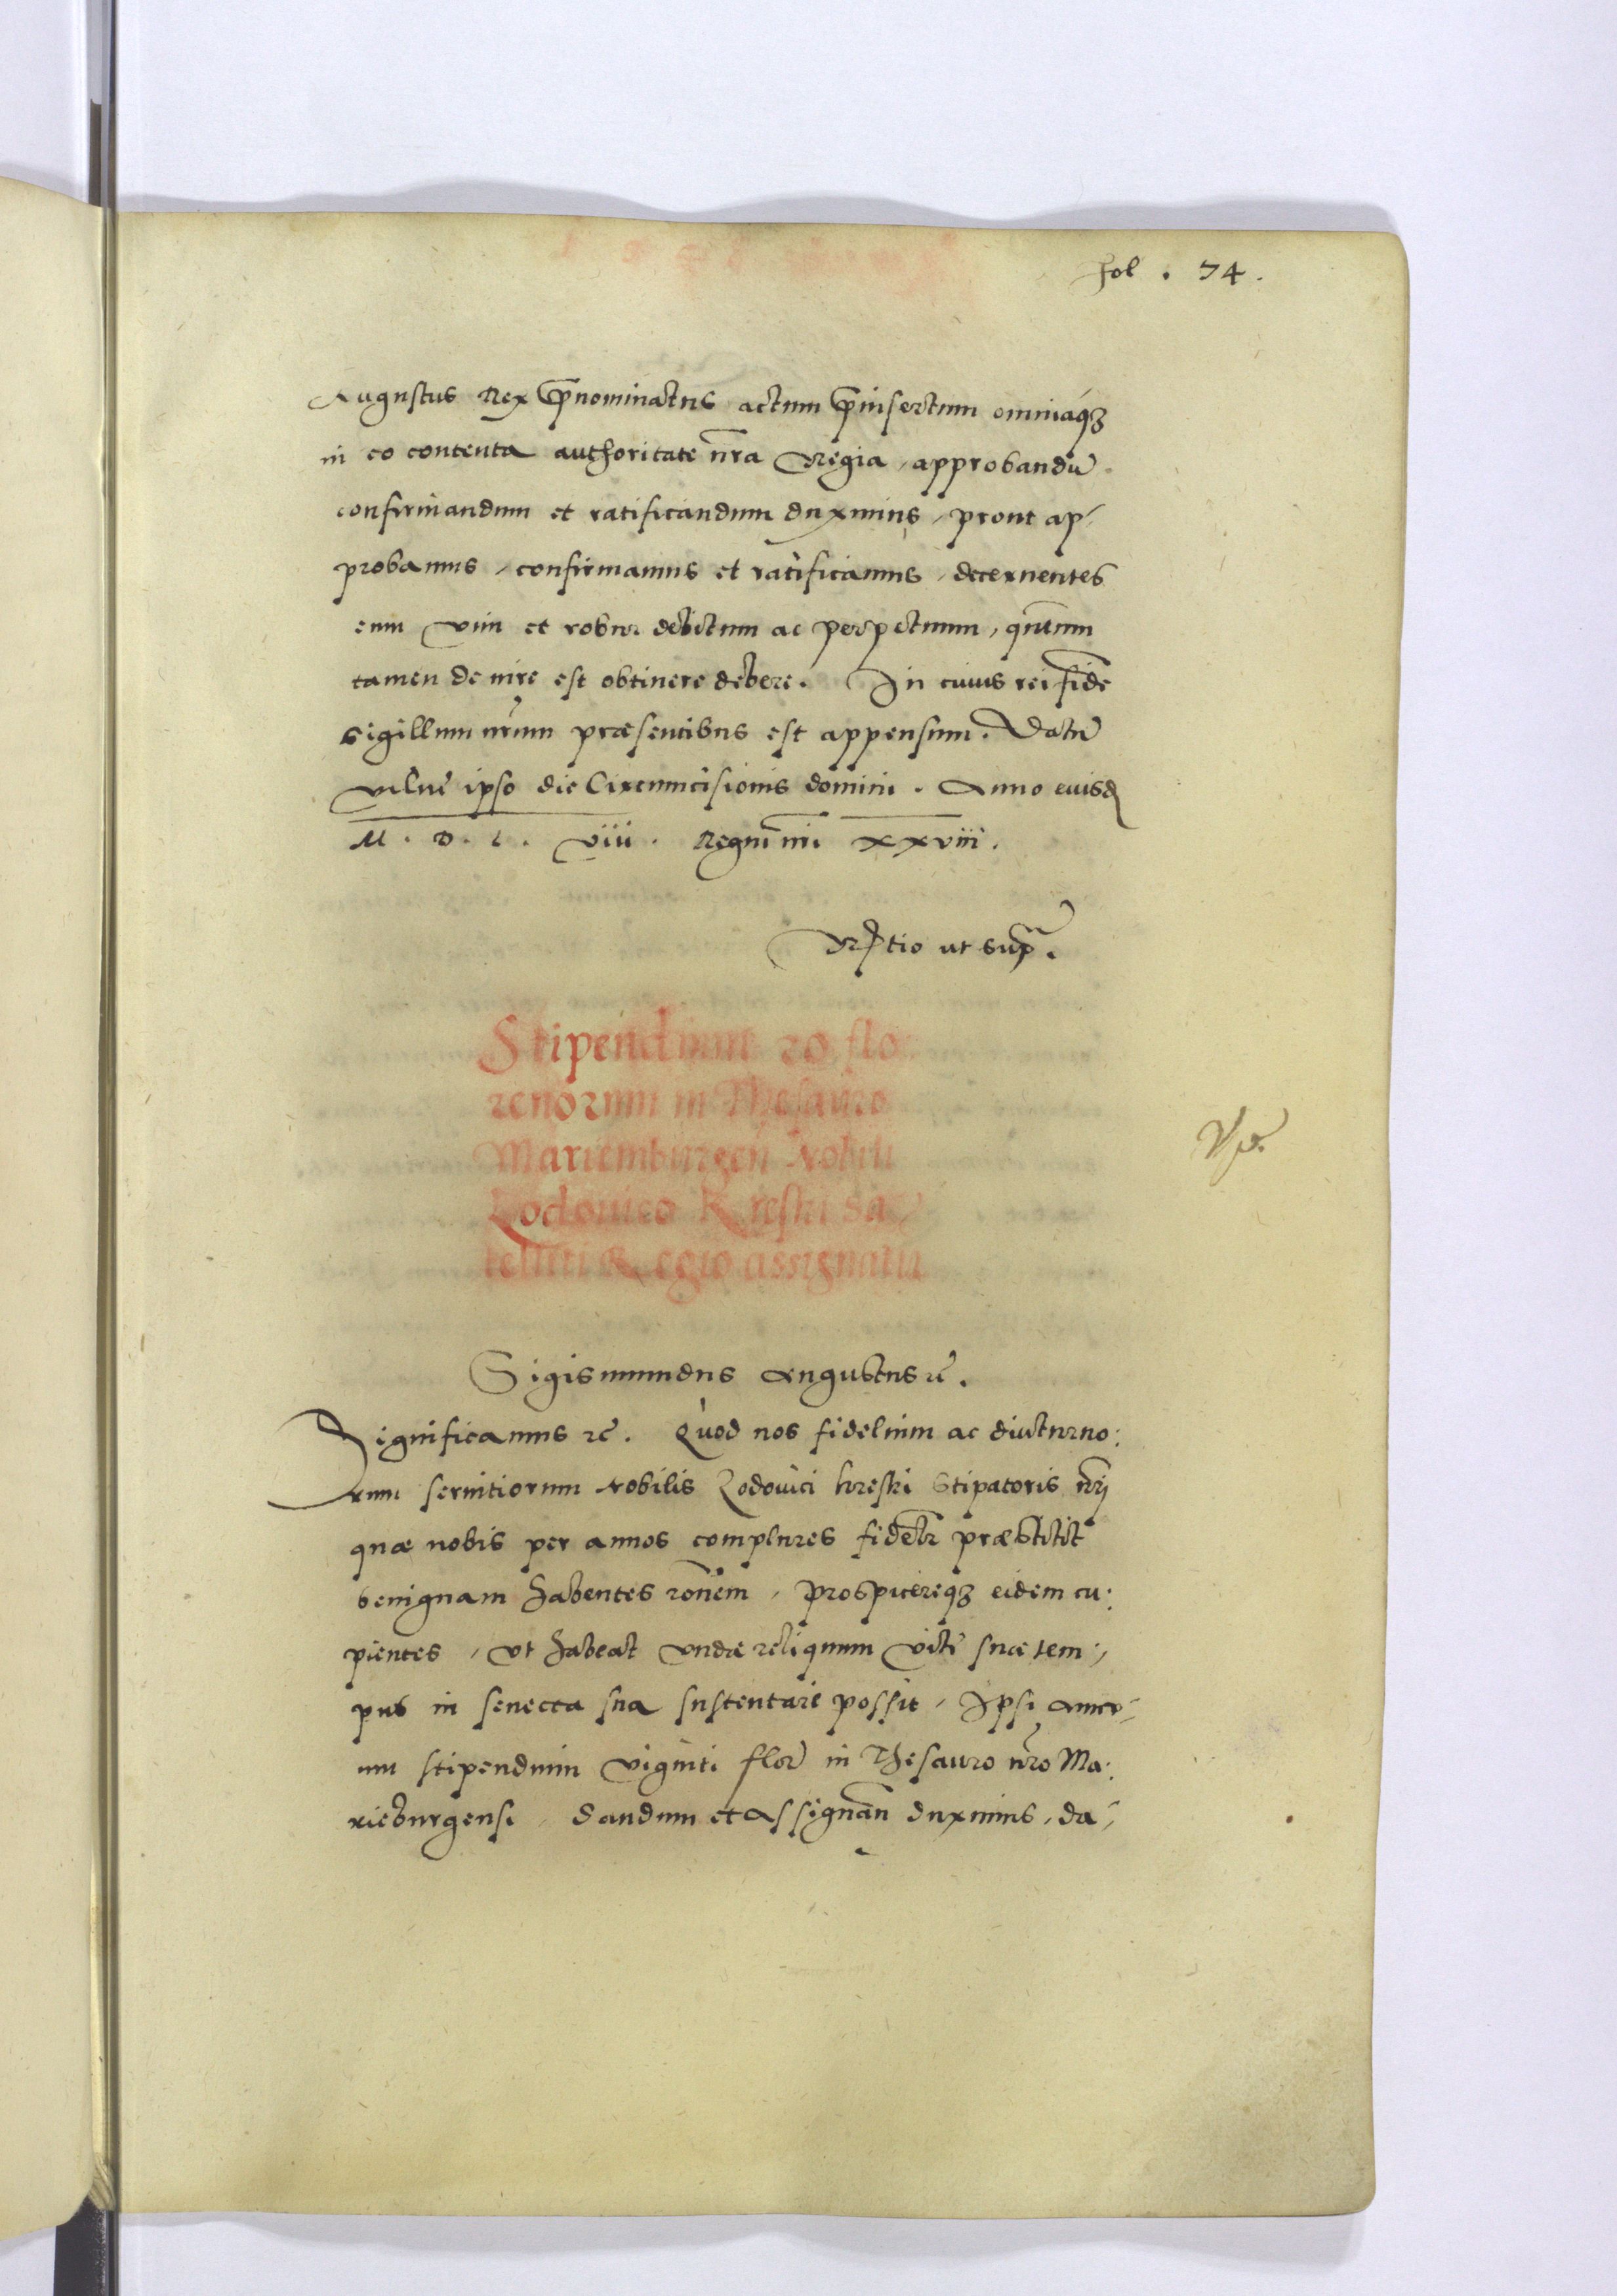 Fol . 74 .
Augustus Rex p̄nominatus actum p̄insertum omniaq́ꝫ
in eo contenta authoritate nr̄a Regia, approbandū
confirmandum et ratificandum duximus, prout ap-
probamus, confirmamus et ratificamus, decernentes
eum vim et robur debitum ac perpetuum, quātum
tamen de iure est obtinere debere. In cuius rei fidē
sigillum nr̄um præsentibus est appensum. Datū
vilnæ ipso die Circumcisionis domini. Anno eiusd
M . D . L . viii . Regni nr̄i xxviii .
Rl̄tio ut supr̄.
Stipendium 20 flo
renorum in Thesauro
Mariemburgen̄ Nobili
Lodouico Kreski sa-
telliti Regio assignatū
Sigismundus Augustus ꝛc̄.
Significamus ꝛc̄. Quod nos fidelium ac diuturno:
rum seruitiorum Nobilis Lodouici Kreski Stipatoris nr̄i
quæ nobis per annos complures fidelr̄ præstitit
benignam habentes ron̄em, prospicereqꝫ eidem cu:
pientes, vt habeat vnde reliquum vitæ suæ tem:
pus in senecta sua sustentare possit, Ipsi annu-
um stipendium viginti flor̄ in Thesauro nr̄o Ma:
rieburgensi, dandum et assignan̄ duximus, da-